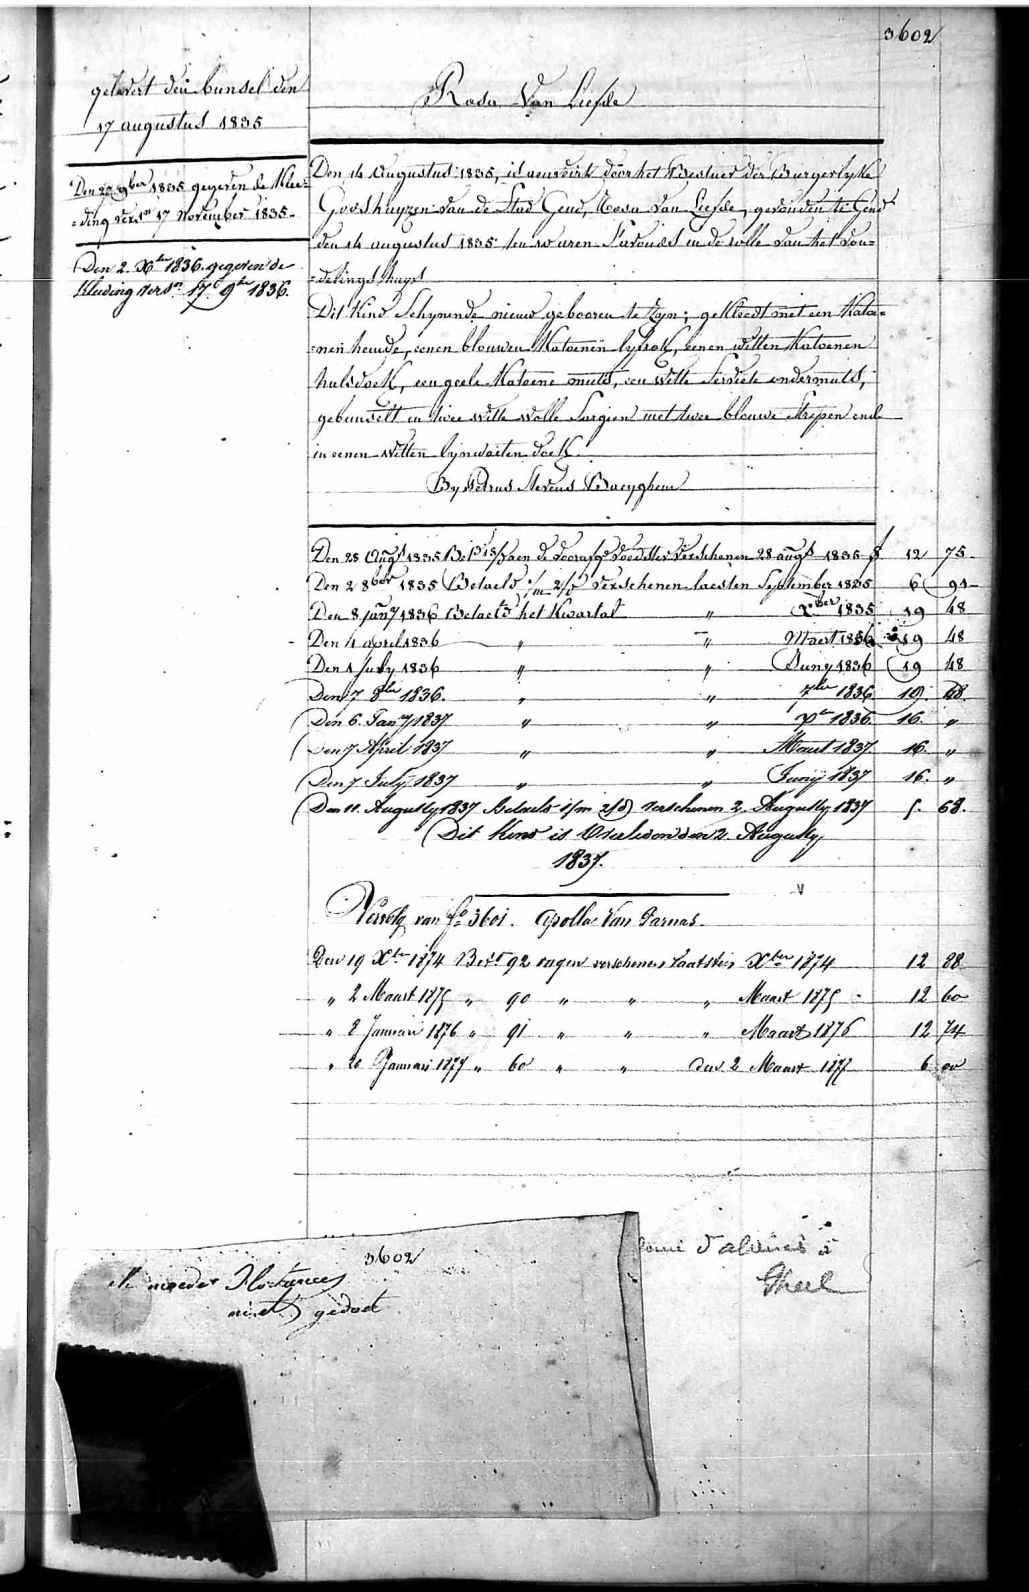 3602
gelevert den bunsel den
17 augustus 1835
Den 20 9ber 1835 gegeven de Klee=
=ding versn 17 November 1835.
Den 2. Xber 1836. gegeven de
kleeding versn 17 9ber 1836.
Rosa Van Liefde
Den 14 Augustus 1835, is aenveirt door het Bestuer der Burgerlyke
Godshuyzen van de Stad Gend, Rosa Van Liefde, gevonden te Gend
den 14 augustus 1835 ten 10 uren s'avonds in de rolle van het von=
=delings huys
Dit Kind Schynende nieuw gebooren te Zyn; gekleedt met een Katoe=
=nen hemde, eenen blouwen Katoenen lyfrok, eenen witten Katoenen
halsdoek, een geele Katoene muts, een witte Serviete ondermuts,
gebunselt in twee witte wolle Sargien met twee blouwe strepen ende
in eenen witten lynwaeten doek.
By Petrus Stevens Baeyghem
Den 28 Augt 1835 aen de voedster verschenen 28 augt 1835 f 12 75
Den 2 8ber 1835 Betaeld i/m 2/d verschenen laesten September 1835 6 91
Den 8 Jany 1836 Betaeld het Kwartal " Xber 1835 19 48
Den 4 april 1836 " " Maert 1836 19 48
Den 1 July 1836 " " Juny 1836 19 48
Den 7 8ber 1836. " " 7ber 1836 19. 68.
Den 6. Jany 1837 " " Xber 1836. 16. "
Den 7 April 1837 " " Maert 1837. 16. "
Den 7 July 1837 " " Junij 1837 16. "
Den 11. Augusty 1837 Betaeld i/m 2/d verschenen 2. Augusty 1837 5. 68.
Dit Kind is Overleden den 2. Augusty
1837.
Vervolg van fo 3601. Apolla Van Parnas.
Den 19 Xber 1874 Betd 92 dagen verschenen laatsten Xber 1874 12 88
" 2 Maart 1875 " 90 " " " Maart 1875 12 60
" 8 Januari 1876 " 91 " " " Maart 1876 12 74
" 20 Januari 1877 " 60 " " den 2 Maart 1877 6 00
3602
de moeder
niet gedoct
d'aliénés à
Gheel